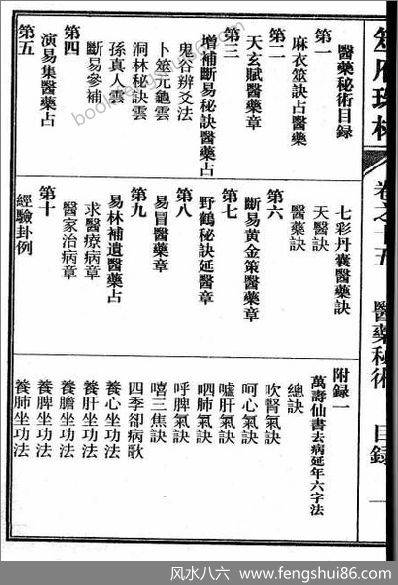 筮府珠林
卷之十五
醫藥秘術
目錄
一
醫藥秘術目錄
第一
麻衣筮訣占醫藥
第二
天玄賦醫藥章
第三
增補斷易秘訣醫藥占
鬼谷辨爻法
卜筮元龜雲
洞林秘訣雲
孫真人雲
斷易參補
第四
演易集醫藥占
第五
七彩丹囊醫藥訣
天醫訣
醫藥訣
第六
斷易黃金策醫藥章
第七
野鶴秘訣延醫章
第八
易冒醫藥章
第九
易林補遺醫藥占
求醫療病章
醫家治病章
第十
經驗卦例
附錄一
萬壽仙書去病延年六字法
總訣
吹腎氣訣
呵心氣訣
噓肝氣訣
呬肺氣訣
呼脾氣訣
嘻三焦訣
四季卻病歌
養心坐功法
養肝坐功法
養膽坐功法
養脾坐功法
養肺坐功法
风水八六 www.fengshui86.com